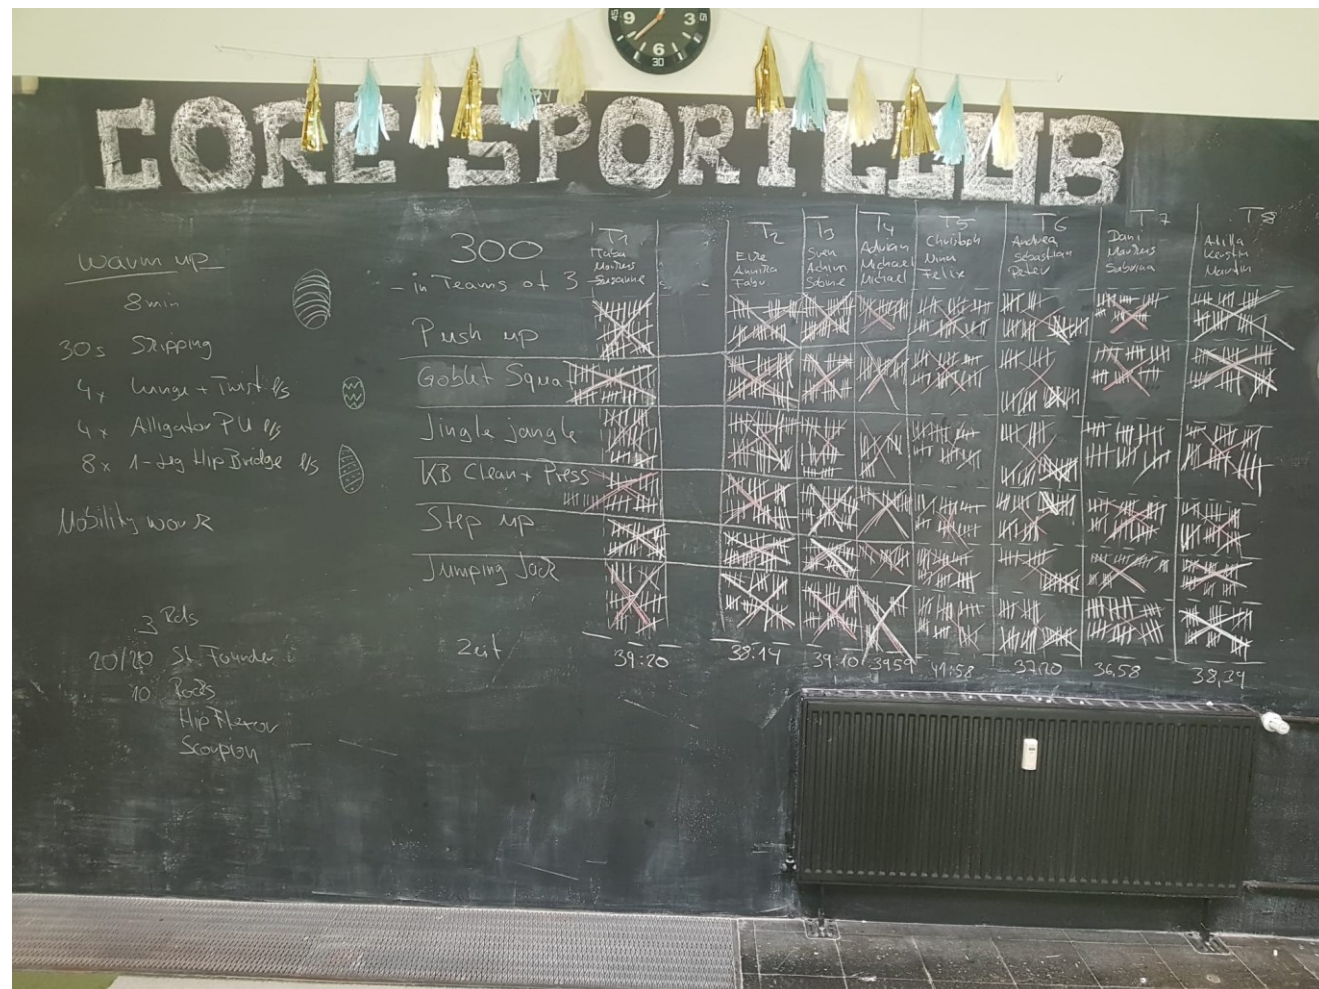 9 3
6
45
30
CORE SPORTCLUB
warm up
8 min
30s Skipping
4x Lunge + Twist e/s
4x Alligator PU e/s
8x 1-Leg Hip Bridge e/s
Mobility work
3 Rds
20/20 St. Founder
10 Rocks
Hip Flexor
Scorpion
300
- in Teams of 3 -
Push up
Goblet Squat
Jingle jangle
KB Clean + Press
Step up
Jumping Jack
Zeit
T1
Susanne
39:20
T2
Annika
38:14
T3
Sven
Achim
Sabine
39:10
T4
Adrian
Michael
Michael
3959
T5
Christoph
Nina
Felix
41:58
T6
Andrea
Sebastian
Peter
37:20
T7
Dani
Markus
Sabrina
36,58
T8
Attila
Kerstin
Martin
38,34